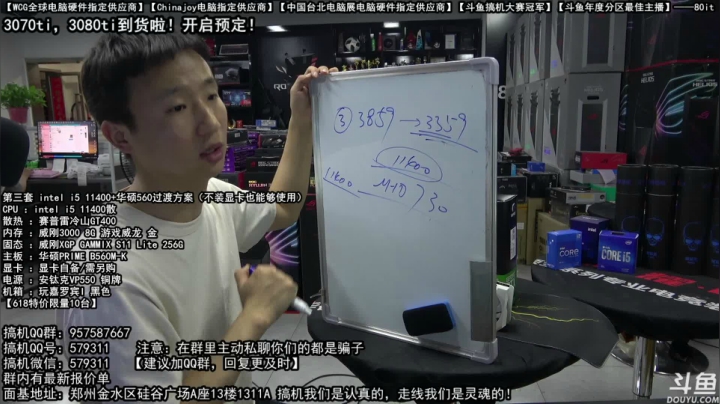 【WCG全球电脑硬件指定供应商】【Chinajoy电脑指定供应商】【中国台北电脑展电脑硬件指定供应商】【斗鱼搞机大赛冠军】【斗鱼年度分区最佳主播】——80it
3070ti，3080ti到货啦！开启预定！
③ 3859 → 3359
11400
11400
730
HELIOS
HELIOS
CORE i5
第三套 intel i5 11400+华硕560过渡方案（不装显卡也能够使用）
CPU ：intel i5 11400散
散热 ：赛普雷冷山GT400
内存 ：威刚3000 8G 游戏威龙 金
固态 ：威刚XGP GAMMIX S11 Lite 256G
主板 ：华硕PRIME B560M-K
显卡 ：显卡自备/需另购
电源 ：安钛克VP550 铜牌
机箱 ：玩嘉罗宾I 黑色
【618特价限量10台】
搞机QQ群：957587667
搞机QQ号：579311 注意：在群里主动私聊你们的都是骗子
搞机微信：579311 【建议加QQ群，回复更及时】
群内有最新报价单
面基地址：郑州金水区硅谷广场A座13楼1311A 搞机我们是认真的，走线我们是灵魂的！
斗鱼
DOUYU.COM